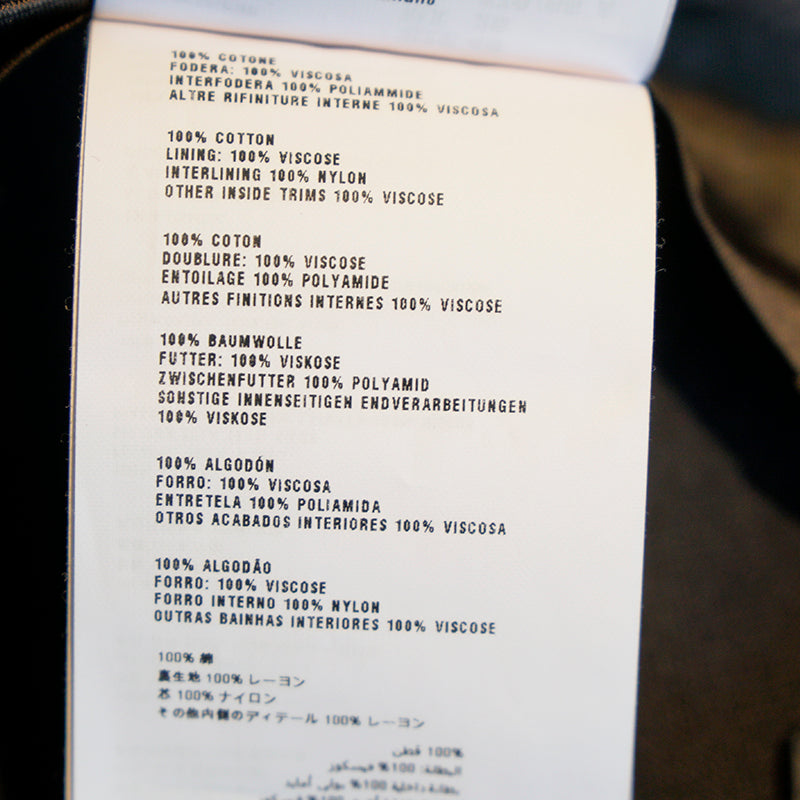 100% COTONE
FODERA: 100% VISCOSA
INTERFODERA 100% POLIAMMIDE
ALTRE RIFINITURE INTERNE 100% VISCOSA
100% COTTON
LINING: 100% VISCOSE
INTERLINING 100% NYLON
OTHER INSIDE TRIMS 100% VISCOSE
100% COTON
DOUBLURE: 100% VISCOSE
ENTOILAGE 100% POLYAMIDE
AUTRES FINITIONS INTERNES 100% VISCOSE
100% BAUMWOLLE
FUTTER: 100% VISKOSE
ZWISCHENFUTTER 100% POLYAMID
SONSTIGE INNENSEITIGEN ENDVERARBEITUNGEN
100% VISKOSE
100% ALGODÓN
FORRO: 100% VISCOSA
ENTRETELA 100% POLIAMIDA
OTROS ACABADOS INTERIORES 100% VISCOSA
100% ALGODÃO
FORRO: 100% VISCOSE
FORRO INTERNO 100% NYLON
OUTRAS BAINHAS INTERIORES 100% VISCOSE
100% 綿
裏生地 100% レーヨン
芯 100% ナイロン
その他内側のディテール 100% レーヨン
100% قطن
البطانة: 100% فيسكوز
بطانة داخلية 100% بولي أمايد